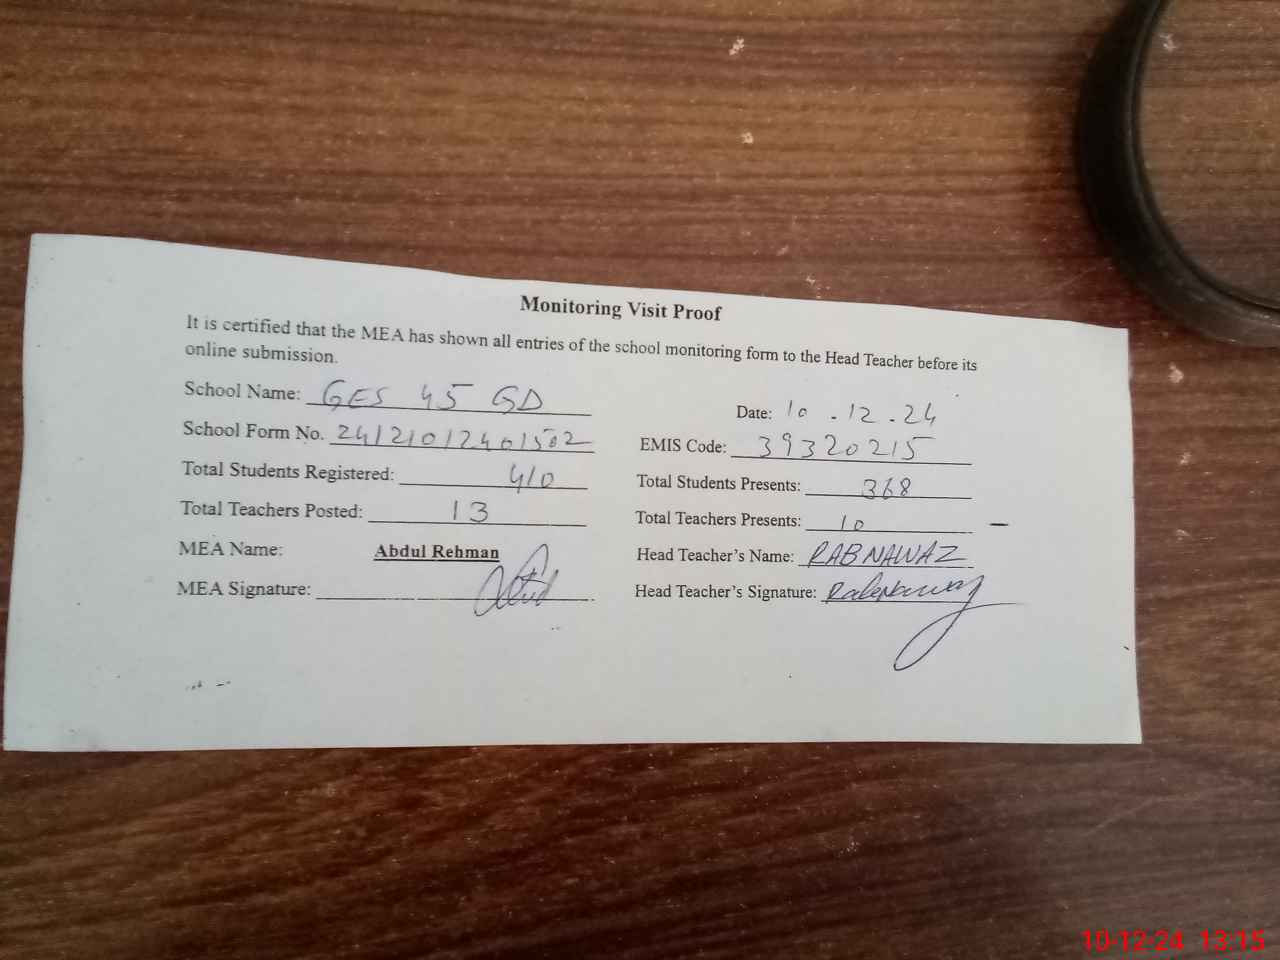 Monitoring Visit Proof
It is certified that the MEA has shown all entries of the school monitoring form to the Head Teacher before its
online submission.
School Name: GES 45 GD
Date: 10.12.24
School Form No. 24121012401502
EMIS Code: 39320215
Total Students Registered: 410
Total Students Presents: 368
Total Teachers Posted: 13
Total Teachers Presents: 10
MEA Name: Abdul Rehman
Head Teacher's Name: RAB NAWAZ
MEA Signature:
Head Teacher's Signature: Rabnawaz
10-12-24 13:15